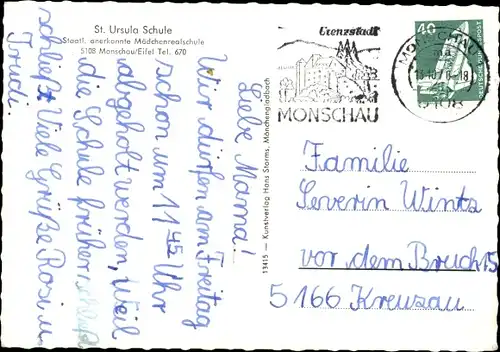 St. Ursula Schule
Staatl. anerkannte Mädchenrealschule
5108 Monschau/Eifel Tel. 670
Liebe Mama!
Wir dürfen am Freitag
schon um 11 45 Uhr
abgeholt werden, Weil
die Schule früher schließt
schließt Viele Grüße Rosi u.
Trudi.
13415 — Kunstverlag Hans Storms, Mönchengladbach
Grenzstadt
MONSCHAU
MONSCHAU
5108
40
DEUTSCHE BUNDESPOST
Familie
Severin Wintz
vor dem Bruch 15
5166 Kreuzau